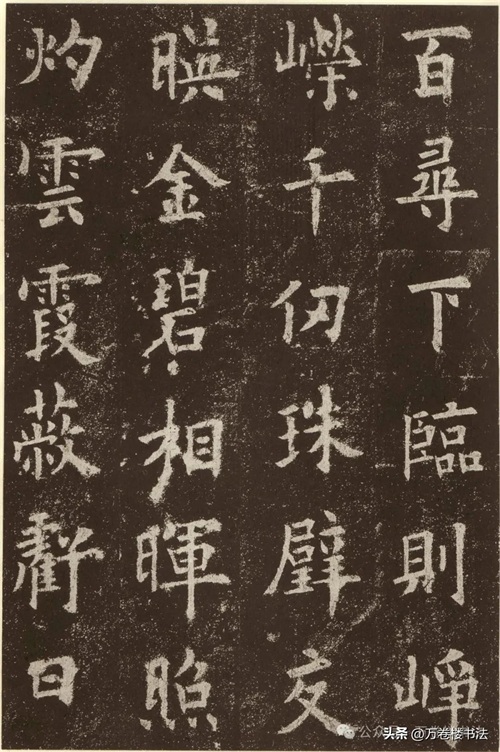 百尋下臨則崢
嶸千仞珠壁交
暎金碧相暉照
灼雲霞蔽虧日
头条 @万卷楼书法